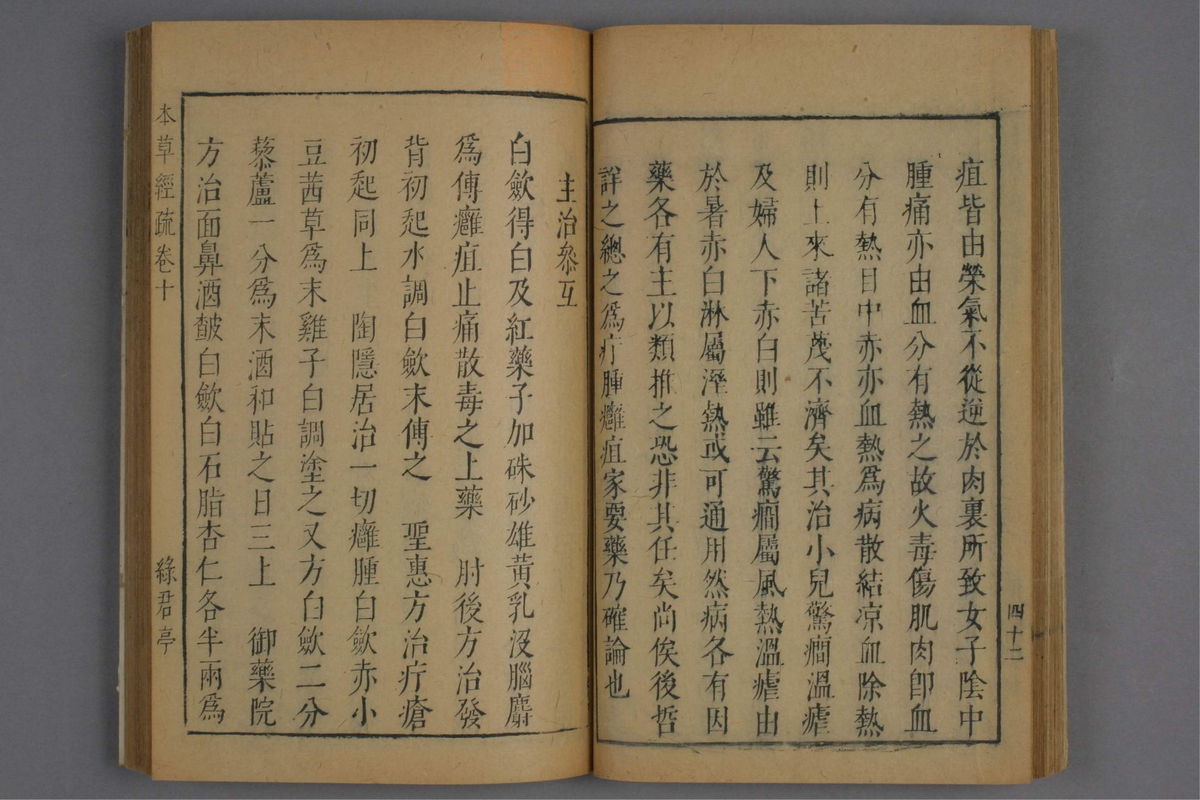 疽皆由榮氣不從逆於肉裏所致女子陰中
腫痛亦由血分有熱之故火毒傷肌肉卽血
分有熱目中赤亦血熱爲病散結凉血除熱
則上來諸苦蔑不濟矣其治小兒驚癎溫瘧
及婦人下赤白則雖云驚癎屬風熱溫瘧由
於暑赤白淋屬溼熱或可通用然病各有因
藥各有主以類推之恐非其任矣尚俟後哲
詳之總之爲疔腫癰疽家要藥乃確論也
四十二
主治叅互
白歛得白及紅藥子加硃砂雄黃乳沒腦麝
爲傅癰疽止痛散毒之上藥 肘後方治發
背初起水調白歛末傅之 聖惠方治疔瘡
初起同上 陶隱居治一切癰腫白歛赤小
豆茜草爲末雞子白調塗之又方白歛二分
藜蘆一分爲末酒和貼之日三上 御藥院
方治面鼻酒皶白歛白石脂杏仁各半兩爲
本草經疏卷十
綠君亭